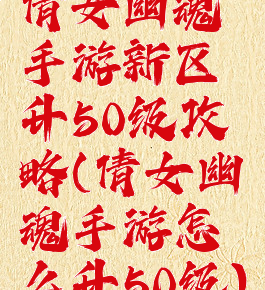 倩女幽魂
手游新区
升50级攻
略(倩女幽
魂手游怎
么升50级)